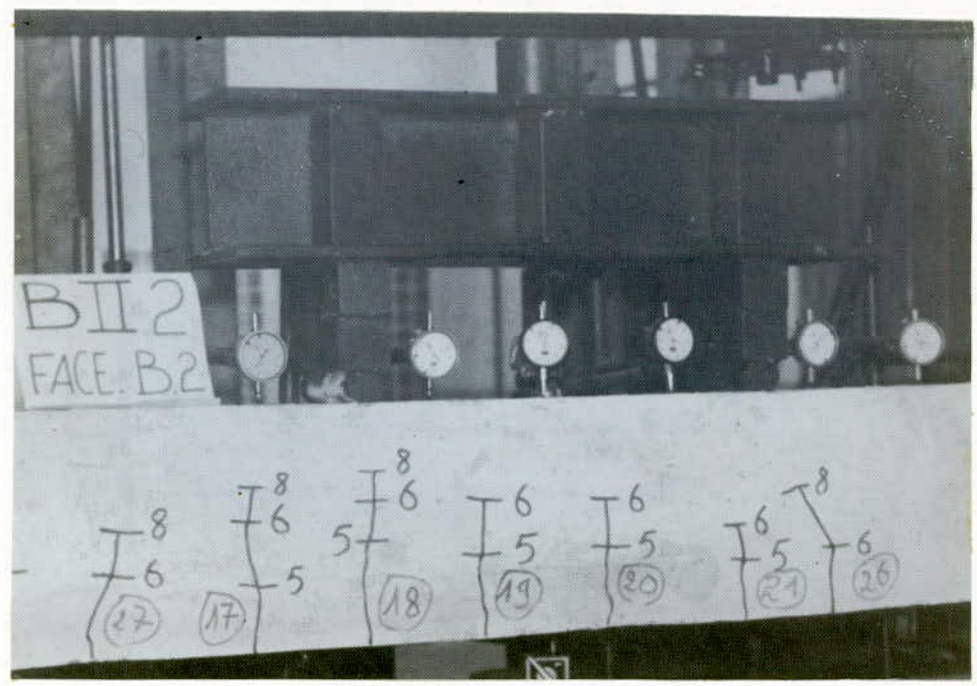 BII2
FACE.B.2
8
6
27
8
6
5
17
8
6
5
18
6
5
19
6
5
20
6
5
21
8
6
26